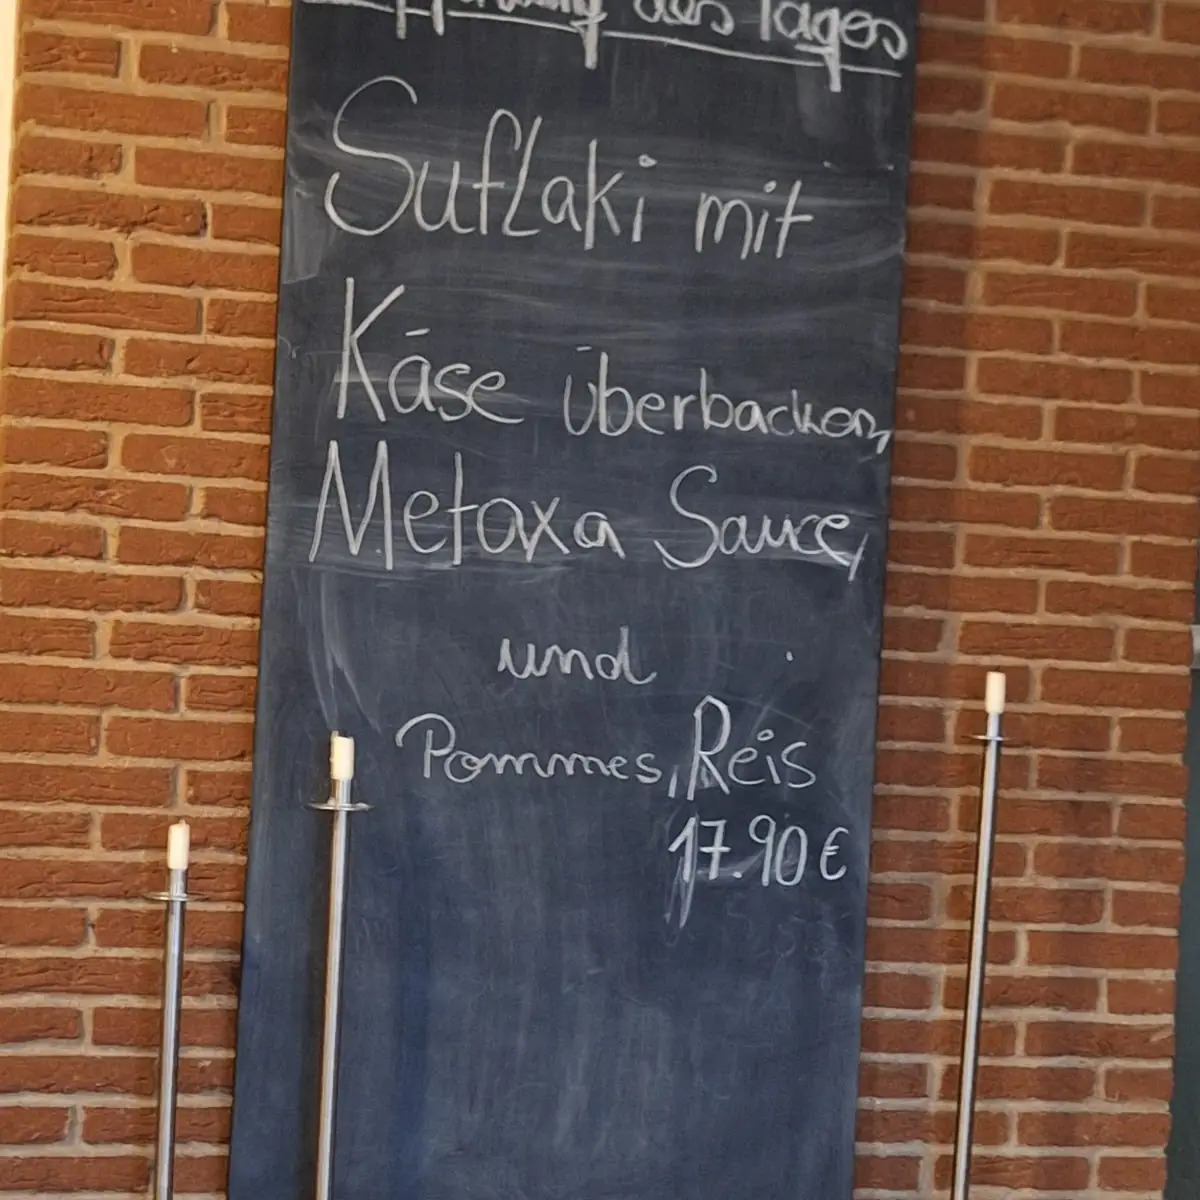 des Tages
Suflaki mit
Käse überbacken,
Metaxa Sauce,
und
Pommes, Reis
17.90€